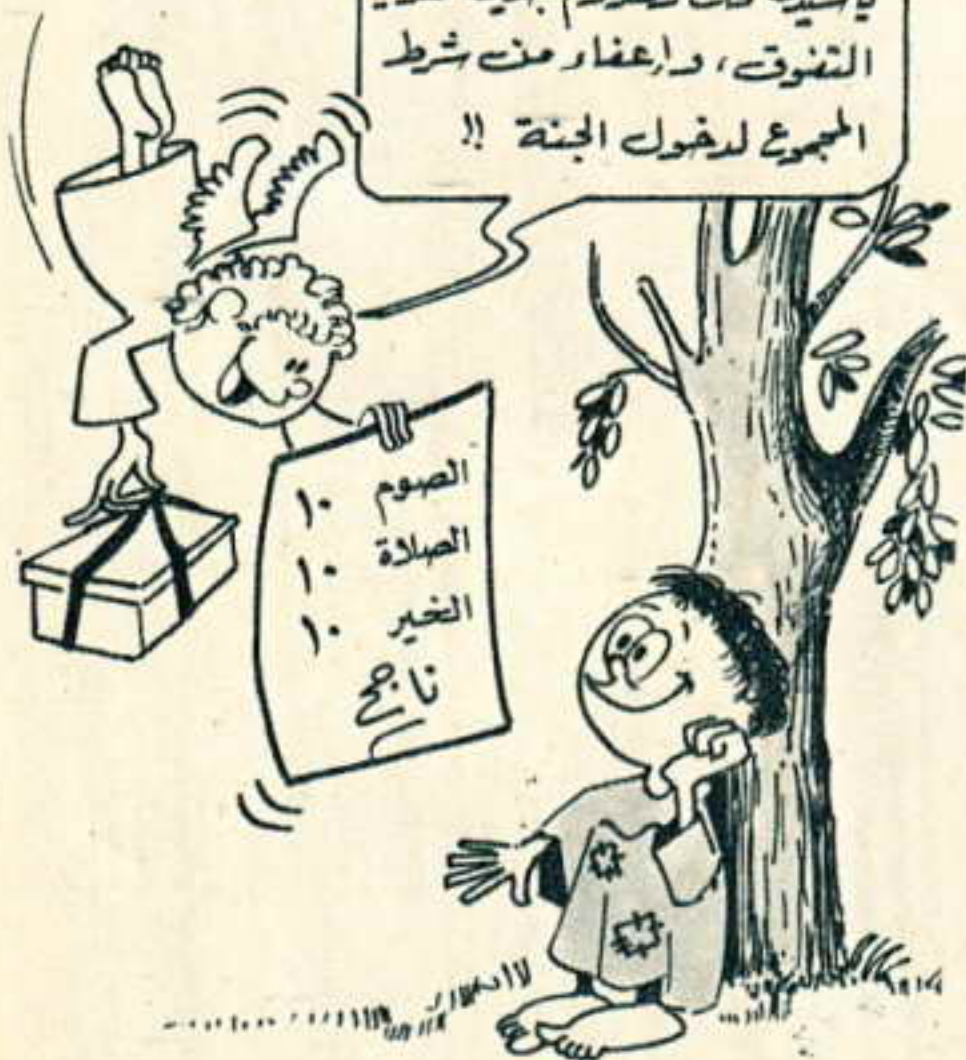 التفوق، وإعفاء من شرط
المجموع لدخول الجنة !!
الصوم ١٠
الصلاة ١٠
الخير ١٠
ناجح